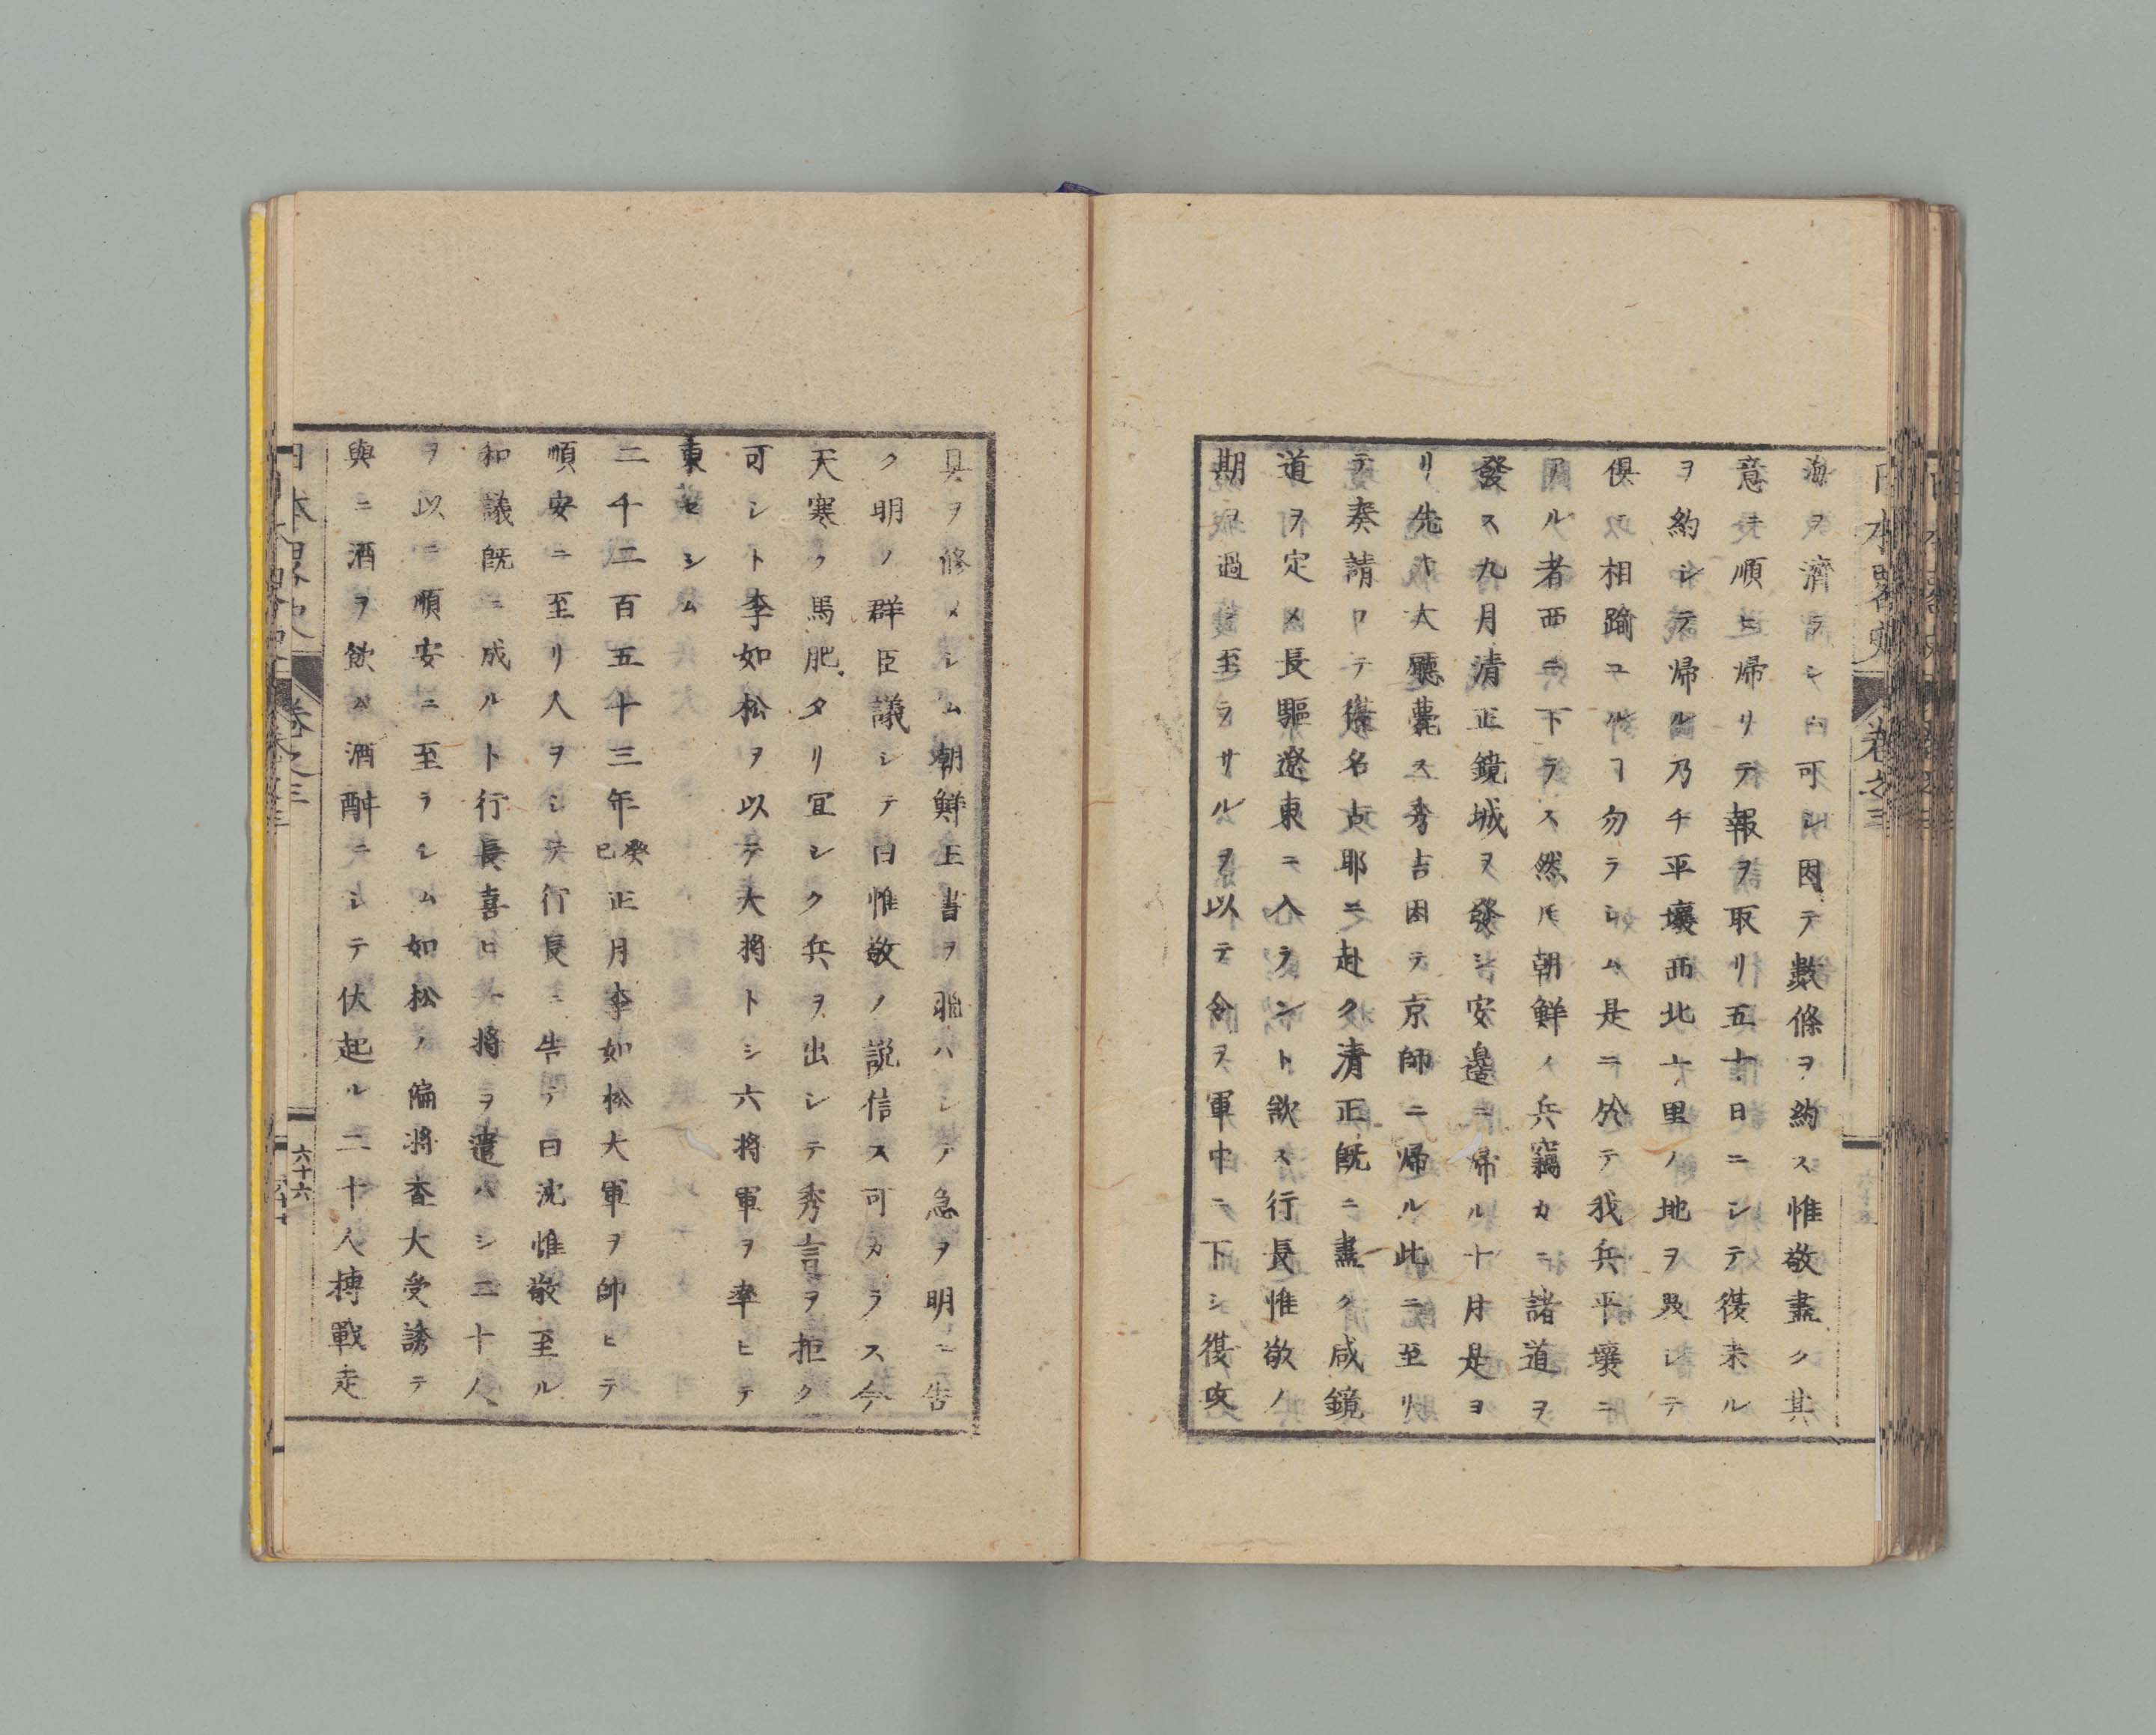 日本略史 卷之三
海ヲ濟ラシ可シ因テ數條ヲ約ス惟敬盡ク其
意ニ順ヒ帰リテ報ヲ取リ五十日ニシテ復来ル
ヲ約シテ帰ル乃チ平壤西北十里ノ地ヲ界シテ
倶ニ相踰ユルヿ勿ラシム是ニ於テ我兵平壤ニ
アル者西ニ下ラス然𪜈朝鮮ノ兵竊カニ諸道ヲ
發ス九月清正鏡城ヲ發シ安邊ニ帰ル十月是ヨ
リ先キ大廳薨ス秀吉因テ京師ニ帰ル此ニ至リ
テ奏請シテ復名古耶ニ赴ク清正既ニ盡ク咸鏡
道ヲ定メ長驅遼東ニ入ラント欲ス行長惟敬ノ
期ヲ過至ラサルヲ以テ令ヲ軍中ニ下シ復攻
具ヲ修メシム朝鮮王書ヲ馳ハシテ急ヲ明ニ告
ク明ノ群臣議シテ曰惟敬ノ説信ス可カラス今
天寒ク馬肥タリ宜シク兵ヲ出シテ秀言ヲ拒ク
可シト李如松ヲ以テ大將トシ六將軍ヲ率ヒテ
東セシム
二千二百五十三年癸巳正月李如松大軍ヲ帥ヒテ
順安ニ至リ人ヲシテ行長ニ告テ曰沈惟敬至ル
和議既ニ成ルト行長喜ヒ將ヲ遣ハシ二十人
ヲ以ニ順安ニ至ラシム如松ノ偏將査大受誘テ
與ニ酒ヲ飲ム酒酣ニシテ伏起ル二十人搏戰走
日本略史 卷之三 六十六